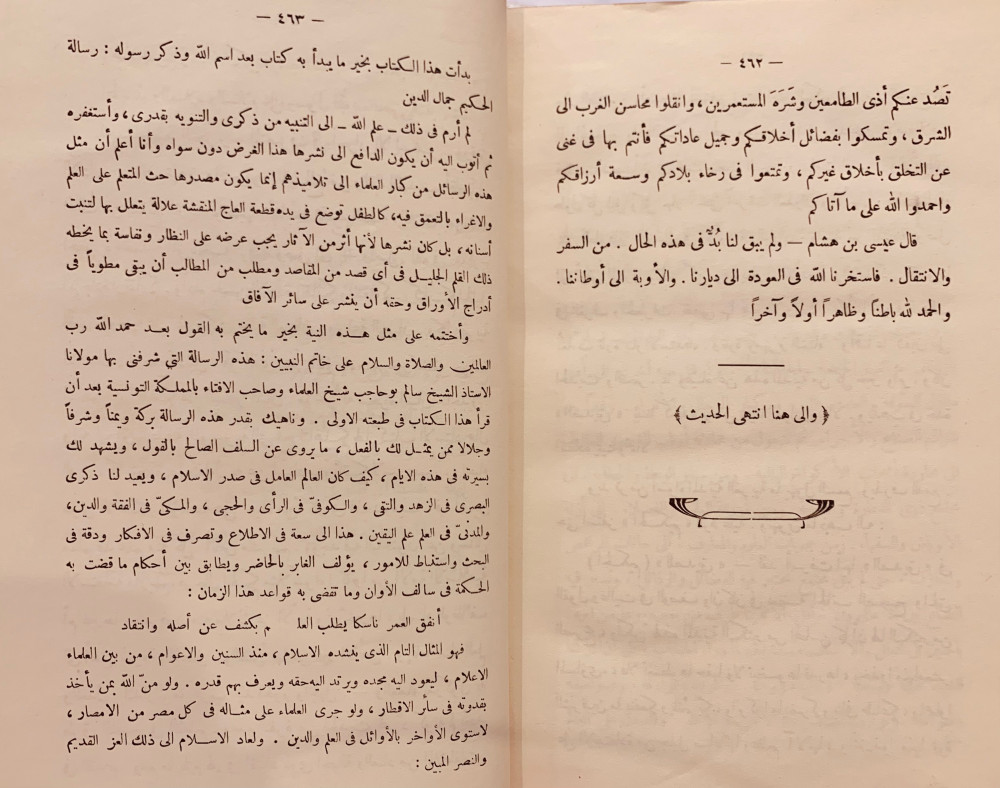 — ٤٦٢ —
تَصُد عنكم أذى الطامعين وشَرَهَ المستعمرين ، وانقلوا محاسن الغرب الى
الشرق ، وتمسكوا بفضائل أخلاقكم وجميل عاداتكم فأنتم بها فى غنى
عن التخلق بأخلاق غيركم ، وتمتعوا فى رخاء بلادكم وسعة أرزاقكم
واحمدوا الله على ما آتاكم
قال عيسى بن هشام — ولم يبق لنا بُدٌّ فى هذه الحال . من السفر
والانتقال . فاستخرنا الله فى العودة الى ديارنا . والأوبة الى أوطاننا .
والحمد لله باطناً وظاهراً أولاً وآخراً
﴿ والى هنا انتهى الحديث ﴾
— ٤٦٣ —
بدأت هذا الكتاب بخير ما يبدأ به كتاب بعد اسم الله وذكر رسوله : رسالة
الحكيم جمال الدين
لم أرم فى ذلك – علم الله – الى التنبيه من ذكرى والتنويه بقدرى ، وأستغفره
ثم أتوب اليه أن يكون الدافع الى نشرها هذا الغرض دون سواه وأنا أعلم أن مثل
هذه الرسائل من كبار العلماء الى تلاميذهم إنما يكون مصدرها حث المتعلم على العلم
والاغراء بالتعمق فيه، كالطفل توضع فى يده قطعة العاج المنقشة علالة يتعلل بها لتنبت
أسنانه ، بل كان نشرها لأنها أثر من الآثار يجب عرضه على النظار ونفاسة بما يخطه
ذلك القلم الجليل فى أى قصد من المقاصد ومطلب من المطالب أن يبقى مطوياً فى
أدراج الأوراق وحقه أن ينشر على سائر الآفاق
وأختمه على مثل هذه النية بخير ما يختم به القول بعد حمد الله رب
العالمين والصلاة والسلام على خاتم النبيين : هذه الرسالة التى شرفنى بها مولانا
الاستاذ الشيخ سالم بوحاجب شيخ العلماء وصاحب الافتاء بالمملكة التونسية بعد أن
قرأ هذا الكتاب فى طبعته الاولى . وناهيك بقدر هذه الرسالة بركة ويمناً وشرفاً
وجلالا ممن يمثل لك بالفعل ، ما يروى عن السلف الصالح بالقول ، ويشهد لك
بسيرته فى هذه الايام ، كيف كان العالم العامل فى صدر الاسلام ، ويعيد لنا ذكرى
البصرى فى الزهد والتقى ، والكوفىّ فى الرأى والحجى ، والمكىّ فى الفقة والدين،
والمدنىّ فى العلم علم اليقين . هذا الى سعة فى الاطلاع وتصرف فى الافكار ودقة فى
البحث واستنباط للامور ، يؤلف الغابر بالحاضر ويطابق بين أحكام ما قضت به
الحكمة فى سالف الأوان وما تقضى به قواعد هذا الزمان :
أنفق العمر ناسكا يطلب العلـ م بكشف عن أصله وانتقاد
فهو المثال التام الذى ينشده الاسلام ، منذ السنين والاعوام ، من بين العلماء
الاعلام ، ليعود اليه مجده ويرتد اليه حقه ويعرف بهم قدره . ولو منّ الله بمن يأخذ
بقدوته فى سائر الاقطار ، ولو جرى العلماء على مثاله فى كل مصر من الامصار ،
لاستوى الأواخر بالأوائل فى العلم والدين . ولعاد الاسلام الى ذلك العز القديم
والنصر المبين :